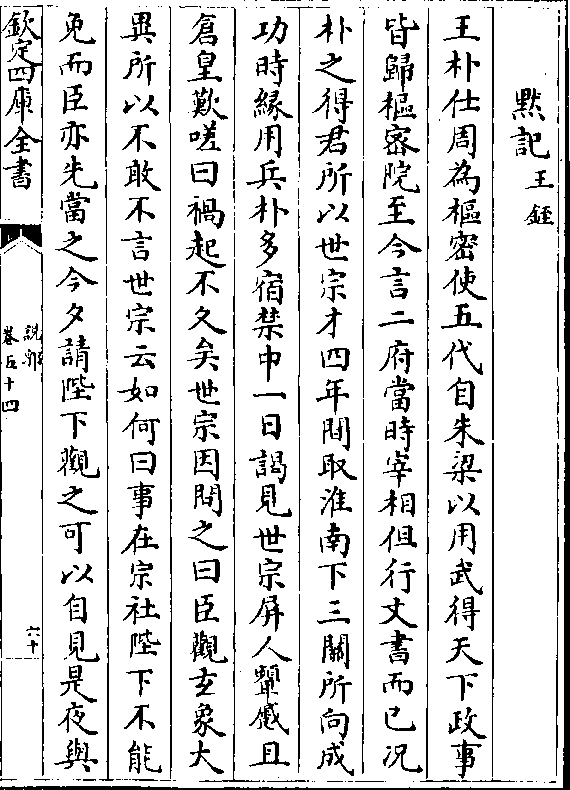 默記王銍
王朴仕周為樞密使五代自朱梁以用武得天下政事
皆歸樞密院至今言二府當時宰相但行文書而已况
朴之得君所以世宗才四年間取淮南下三關所向成
功時緣用兵朴多宿禁中一日謁見世宗屏人顰蹙且
倉皇歎嗟曰禍起不久矣世宗因問之曰臣觀玄象大
異所以不敢不言世宗云如何曰事在宗社陛下不能
免而臣亦先當之今夕請陛下觀之可以自見是夜與
欽定四庫全書
說郛
卷五十四
六十